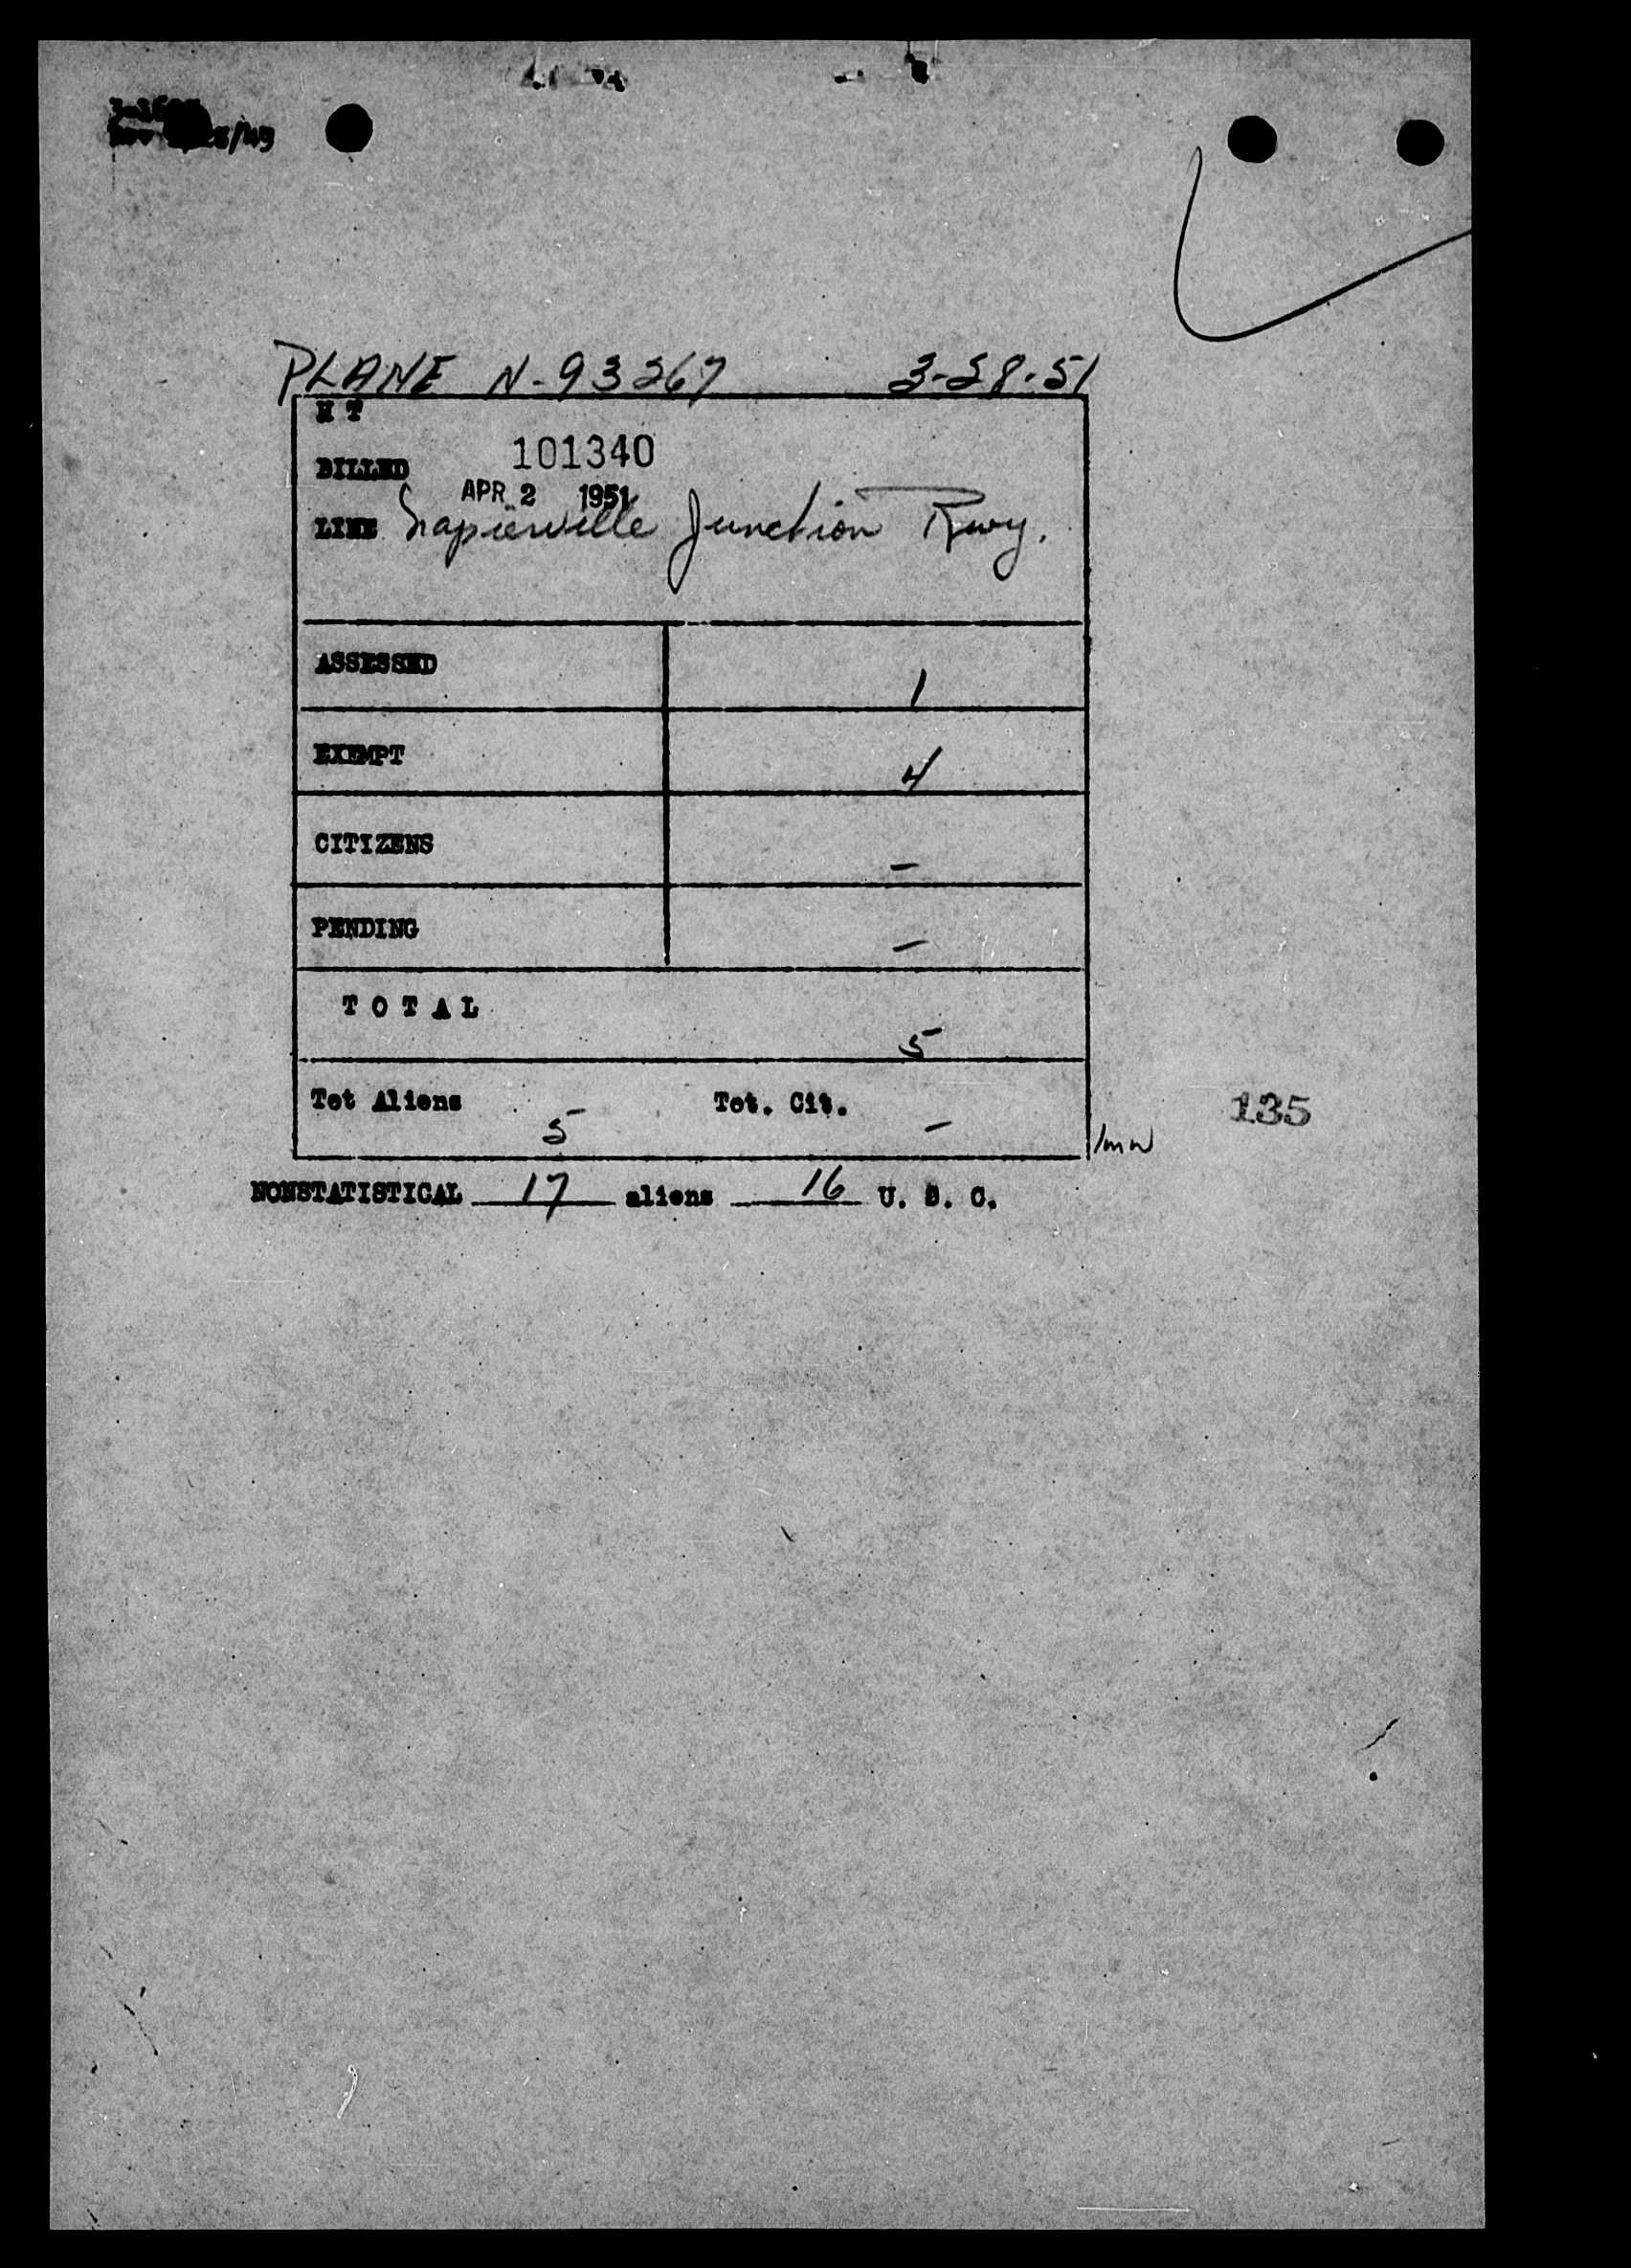 /49
PLANE N-93267 3-28-51
H T
BILLED 101340
APR 2 1951
LINE Napierville Junction Rwy.
ASSESSED 1
EXEMPT 4
CITIZENS –
PENDING –
T O T A L 5
Tot Aliens 5 Tot. Cit. –
/mw
135
NONSTATISTICAL 17 aliens 16 U. S. C.